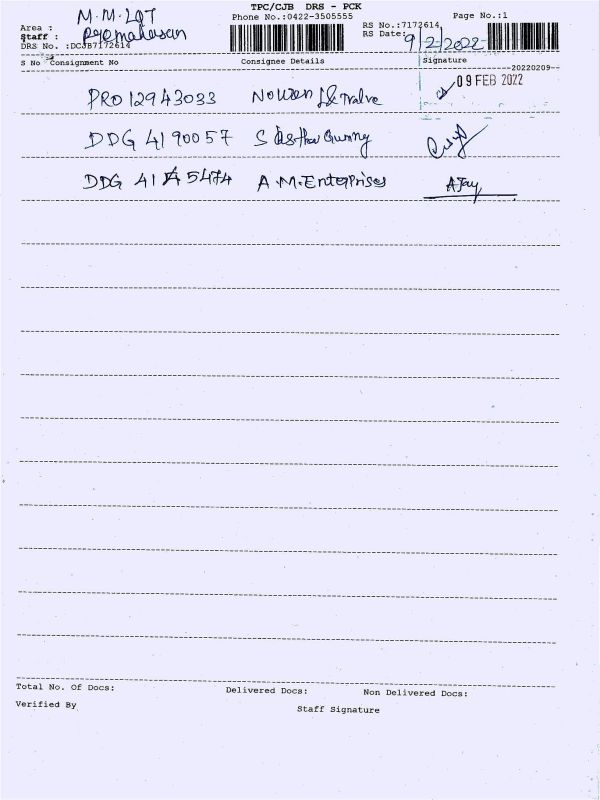 TPC/CJB DRS - PCK
Phone No.:0422-3505555
Page No.:1
Area : M.M.
Staff :
DRS No. :DCJB7172614
RS No.:7172614
RS Date: 9/2/2022
S No Consignment No Consignee Details Signature
20220209
PRO 12943033
09 FEB 2022
DDG 4190057 S
DDG 41 5474 A.M.Enterprises Ajay
Total No. Of Docs: Delivered Docs: Non Delivered Docs:
Verified By Staff Signature